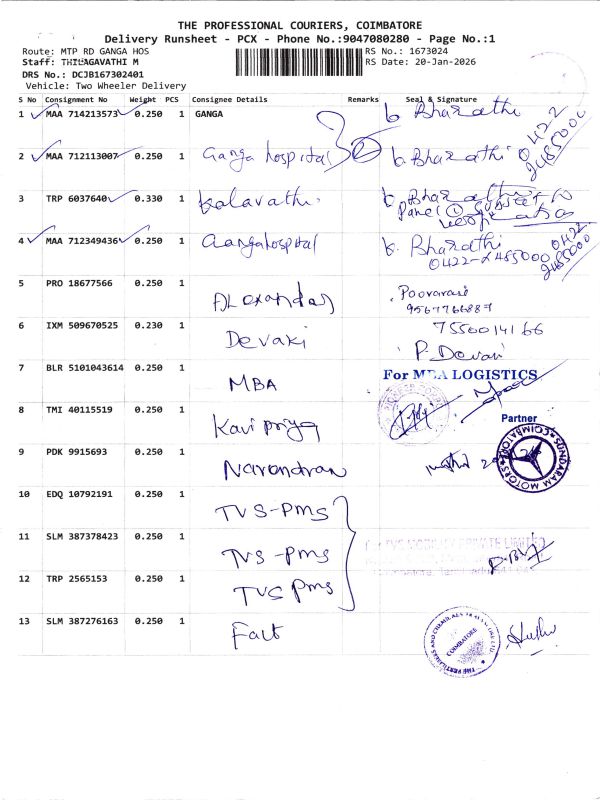 THE PROFESSIONAL COURIERS, COIMBATORE
Delivery Runsheet - PCX - Phone No.:9047080280 - Page No.:1
Route: MTP RD GANGA HOS
RS No.: 1673024
Staff: THILAGAVATHI M
RS Date: 20-Jan-2026
DRS No.: DCJB167302401
Vehicle: Two Wheeler Delivery
S No Consignment No Weight PCS Consignee Details Remarks Seal & Signature
1 MAA 714213573 0.250 1 GANGA b. Bharathi
0422
2485000
2 MAA 712113007 0.250 1 Ganga hospital b. Bharathi
3 TRP 6037640 0.330 1 Kalavathi b. Bharathi
4 MAA 712349436 0.250 1 Ganga hospital b. Bharathi
0422-2485000
0422
2485000
5 PRO 18677566 0.250 1 Alexandar Poovarasi
9567766887
6 IXM 509670525 0.230 1 Devaki 7550014166
P. Devaki
7 BLR 5101043614 0.250 1 MBA For MBA LOGISTICS
Partner
8 TMI 40115519 0.250 1 Kavi priya
9 PDK 9915693 0.250 1 Narendran
SUNDARAM MOTORS COIMBATORE
10 EDQ 10792191 0.250 1 TVS-PMS
11 SLM 387378423 0.250 1 TVS-PMS
For TVS MOBILITY PRIVATE LIMITED
12 TRP 2565153 0.250 1 TVS PMS
13 SLM 387276163 0.250 1 Fact
COIMBATORE